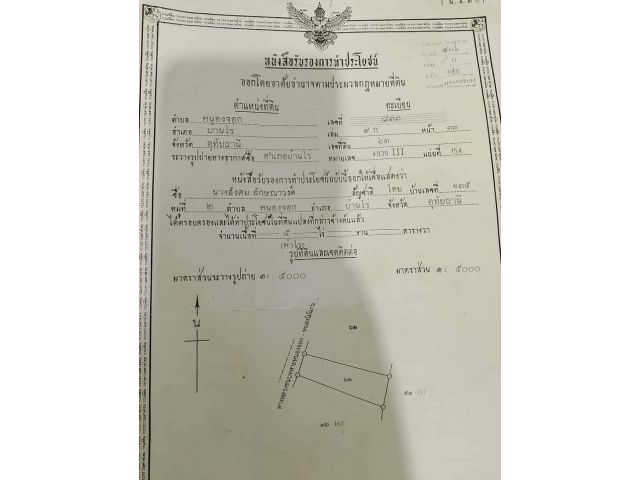 (น.ส.๓ก.)
หนังสือรับรองการทำประโยชน์
ออกโดยอาศัยอำนาจตามประมวลกฎหมายที่ดิน
ตำแหน่งที่ดิน ทะเบียน
ตำบล หนองจอก เลขที่ ๘๓๓
อำเภอ บ้านไร่ เล่ม ๙ ก หน้า ๓๓
จังหวัด อุทัยธานี เลขที่ดิน ๖๓
ระวางรูปถ่ายทางอากาศชื่อ อำเภอบ้านไร่ หมายเลข 4939 III แผ่นที่ 154
หนังสือรับรองการทำประโยชน์ฉบับนี้ออกให้เพื่อแสดงว่า
ชื่อ นางสังคม ลักษณาวงค์ สัญชาติ ไทย บ้านเลขที่ ๑๓๕
หมู่ที่ ๒ ตำบล หนองจอก อำเภอ บ้านไร่ จังหวัด อุทัยธานี
ได้ครอบครองและได้ทำประโยชน์ในที่ดินแปลงที่กล่าวข้างต้นแล้ว
จำนวนเนื้อที่ ๕ ไร่ งาน ตารางวา
(ห้าไร่)
รูปที่ดินและเขตติดต่อ
มาตราส่วนระวางรูปถ่าย ๑: ๕๐๐๐ มาตราส่วน ๑: ๕๐๐๐
น
๖๒
๖๓